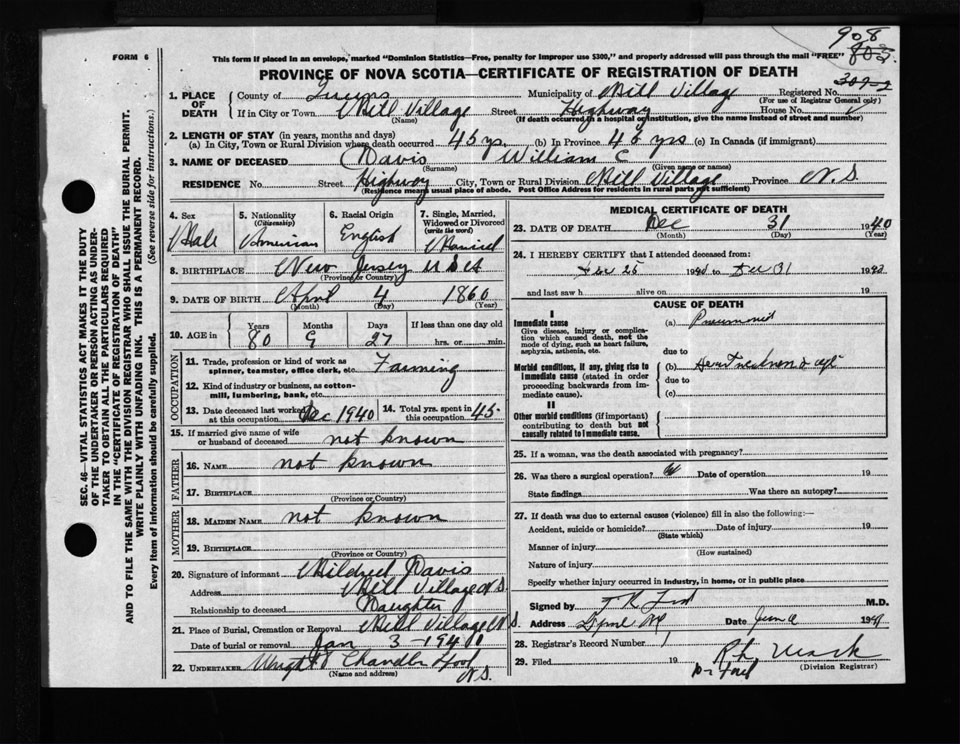 908
803
307-2
FORM 6
This form if placed in an envelope, marked "Dominion Statistics—Free, penalty for improper use $300," and properly addressed will pass through the mail "FREE"
PROVINCE OF NOVA SCOTIA—CERTIFICATE OF REGISTRATION OF DEATH
SEC. 46—VITAL STATISTICS ACT MAKES IT THE DUTY
OF THE UNDERTAKER OR PERSON ACTING AS UNDER-
TAKER TO OBTAIN ALL THE PARTICULARS REQUIRED
IN THE "CERTIFICATE OF REGISTRATION OF DEATH"
AND TO FILE THE SAME WITH THE DIVISION REGISTRAR WHO SHALL ISSUE THE BURIAL PERMIT.
WRITE PLAINLY WITH UNFADING INK. THIS IS A PERMANENT RECORD.
Every item of information should be carefully supplied. (See reverse side for instructions.)
1. PLACE OF DEATH
County of Queens Municipality of Mill Village Registered No.
(For use of Registrar General only)
If in City or Town Mill Village Street Highway House No.
(Name) (If death occurred in a hospital or institution, give the name instead of street and number)
2. LENGTH OF STAY (in years, months and days)
(a) In City, Town or Rural Division where death occurred 45 yrs. (b) In Province 45 yrs (c) In Canada (if immigrant)
3. NAME OF DECEASED Davis William C
(Surname) (Given name or names)
RESIDENCE No. Street Highway City, Town or Rural Division Mill Village Province N.S.
(Residence means usual place of abode. Post Office Address for residents in rural parts not sufficient)
4. Sex Male
5. Nationality (Citizenship) American
6. Racial Origin English
7. Single, Married, Widowed or Divorced (write the word) Married
8. BIRTHPLACE New Jersey U S A
(Province or Country)
9. DATE OF BIRTH April 4 1860
(Month) (Day) (Year)
10. AGE in Years Months Days If less than one day old
80 9 27 hrs. or min.
OCCUPATION
11. Trade, profession or kind of work as spinner, teamster, office clerk, etc. Farming
12. Kind of industry or business, as cotton-mill, lumbering, bank, etc.
13. Date deceased last worked at this occupation Dec 1940 14. Total yrs. spent in this occupation 45
15. If married give name of wife or husband of deceased not known
FATHER
16. Name not known
17. Birthplace
(Province or Country)
MOTHER
18. Maiden Name not known
19. Birthplace
(Province or Country)
20. Signature of informant Mildred Davis
Address Mill Village N.S.
Relationship to deceased Daughter
21. Place of Burial, Cremation or Removal Mill Village N.S.
Date of burial or removal Jan 3 - 1941
22. Undertaker Wright Chandler
N.S.
(Name and address)
MEDICAL CERTIFICATE OF DEATH
23. DATE OF DEATH Dec 31 1940
(Month) (Day) (Year)
24. I HEREBY CERTIFY that I attended deceased from:
Dec 25 1940 to Dec 31 1940
and last saw h alive on 19
CAUSE OF DEATH
I
Immediate cause
Give disease, injury or complication which caused death, not the mode of dying, such as heart failure, asphyxia, asthenia, etc.
(a) Pneumonia
due to
Morbid conditions, if any, giving rise to immediate cause (stated in order proceeding backwards from immediate cause).
(b) Heart weakness & age
due to
(c)
II
Other morbid conditions (if important) contributing to death but not causally related to immediate cause.
25. If a woman, was the death associated with pregnancy?
26. Was there a surgical operation? Date of operation 19
State findings Was there an autopsy?
27. If death was due to external causes (violence) fill in also the following:—
Accident, suicide or homicide? Date of injury 19
(State which)
Manner of injury
(How sustained)
Nature of injury
Specify whether injury occurred in industry, in home, or in public place
Signed by M.D.
Address Date 1941
28. Registrar's Record Number 1
29. Filed 19
(Division Registrar)